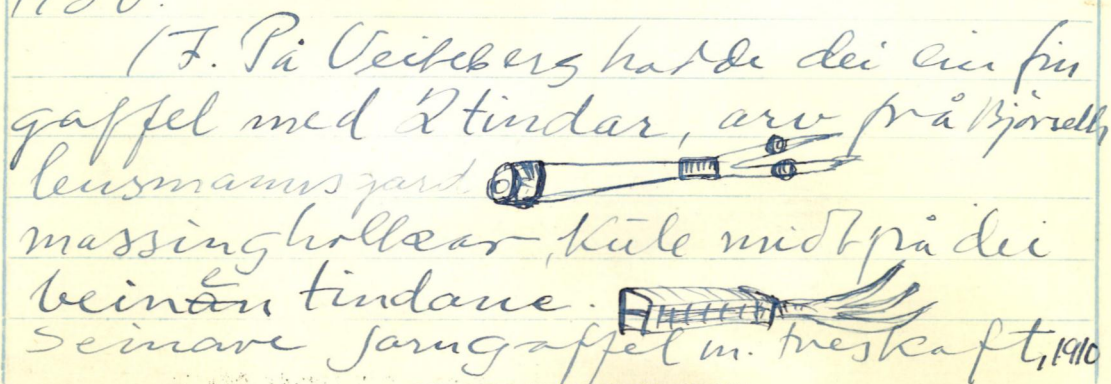 17. På Veiteberg hadde dei ein fin
gaffel med 2 tindar, arv frå Bjørseth
lensmannsgard
massinghollkar, kule midt på dei
beine tindane.
Seinare jarngaffel m. treskaft, 1910